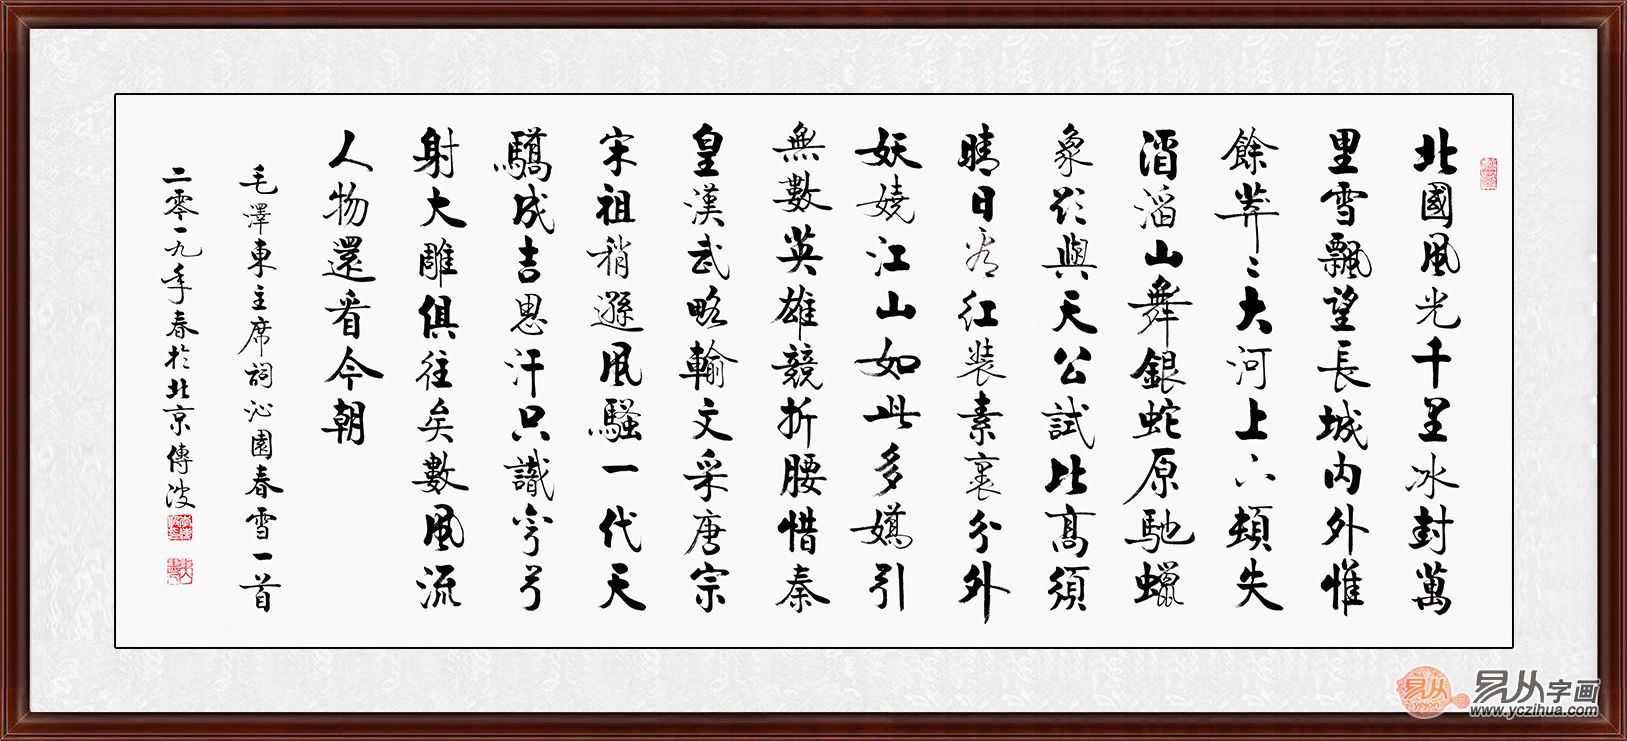 北國風光千里冰封萬
里雪飄望長城内外惟
餘莽〻大河上下頓失
滔滔山舞銀蛇原馳蠟
象欲與天公試比高須
晴日看紅裝素裹分外
妖嬈江山如此多嬌引
無數英雄競折腰惜秦
皇漢武略輸文采唐宗
宋祖稍遜風騷一代天
驕成吉思汗只識彎弓
射大雕俱往矣數風流
人物還看今朝
毛澤東主席詞沁園春雪一首
二零一九年春於北京傳波
易从
yicong
易从字画
www.yczihua.com